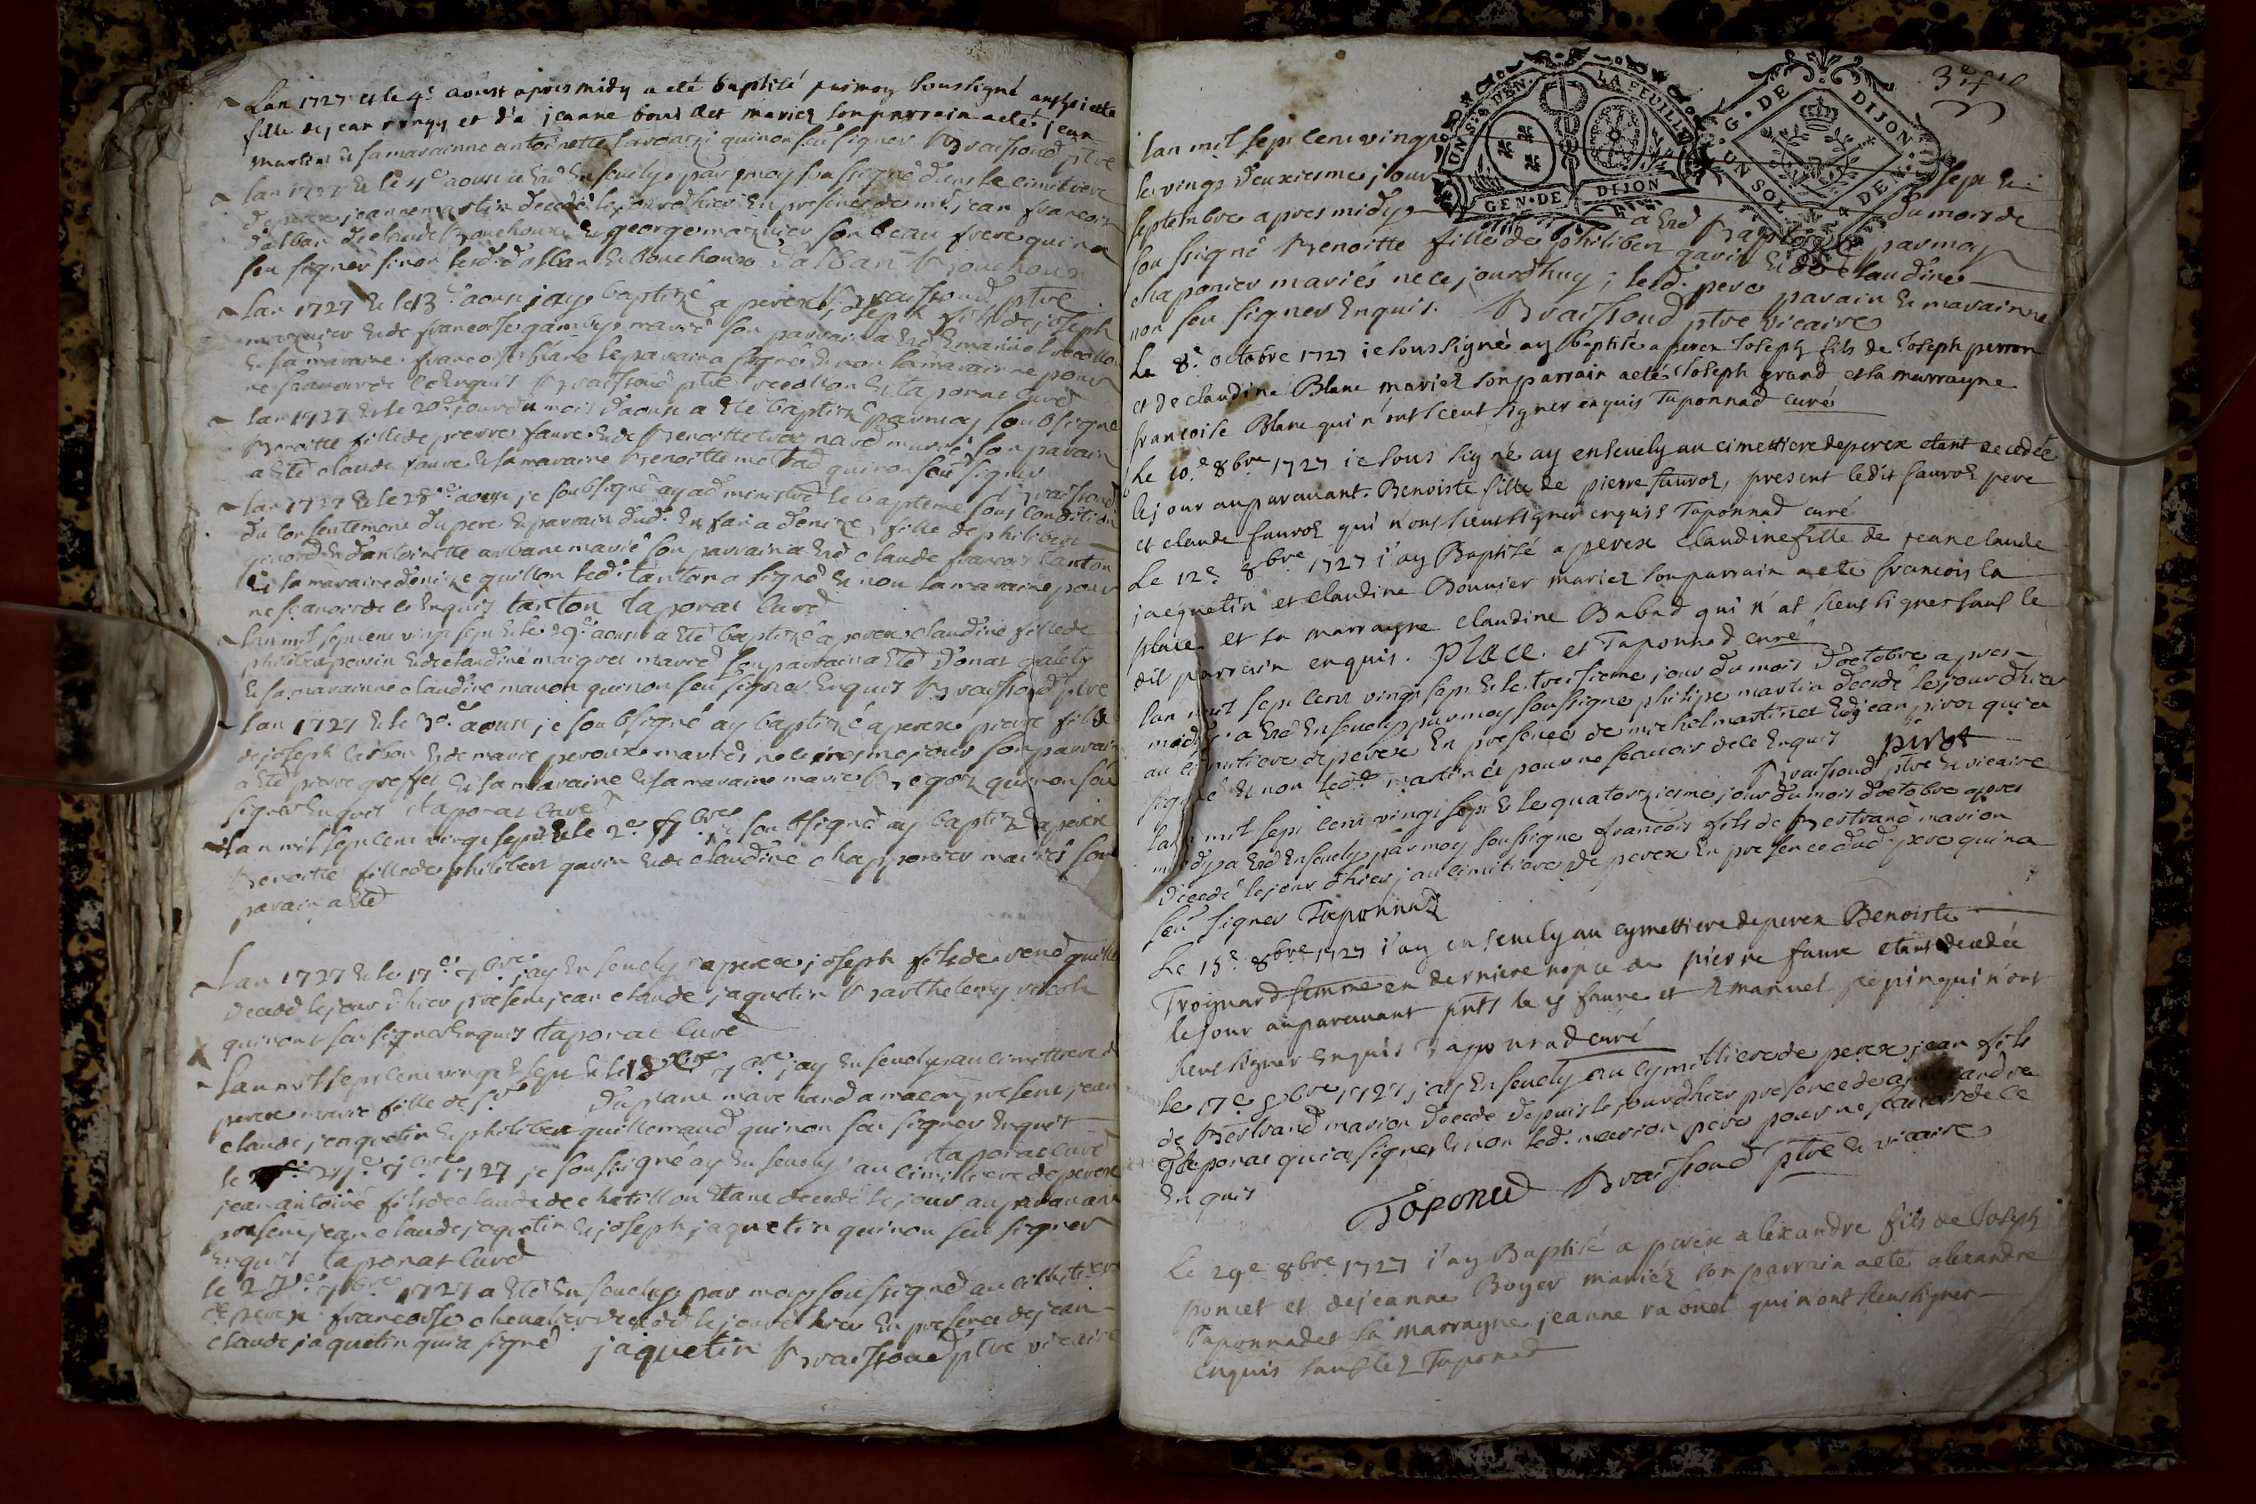 Lan 1727 et le 4e aoust apres midy a eté baptisé par moy soussigné
fille de jean et d'a jeanne mariez son parrain a eté jean
martin et sa maraine antoinette qui n'on seu signer Braissoud ptre
lan 1727 & le 4e aoust a Eté Ensevely par moy soussigné dans le cimitiere
de perex jeanne martin decedé le jourd'hier En presence de mre jean francois
d'alban de claude Bouchoux & george marguier son beau frere qui n'on
seu signer sinon lesd. d'alban & Bouchoux d'alban Bouchoux
Braissoud ptre
lan 1727 & le 13e aoust jay baptizé a perex joseph fils de joseph
marguier & de francoise mariés son parrain a Eté Emanuel
& sa maraine francoise blanc le parain a signé & non la maraine pour
ne scavoir de ce Enquis Braissoud ptre & taponat curé
lan 1727 & le 20e jour du mois d'aoust a Eté baptizé par moy soubsigné
Benoitte fille de pierre faure & de Benoitte mariés son parain
a Eté claude faure & sa maraine Benoitte qui n'on seu signer
Braissoud
lan 1727 & le 28e aoust je soubsigné ay administré le bapteme sous condition
du consentement du pere & parrain dud. Enfan a denize fille de philibert
& d'antoinette mariés son parrain a Eté claude francois tanton
& sa maraine denize guillon led. tanton a signé & non la maraine pour
ne scavoir de ce Enquis tanton taponat curé
lan mil sept cens vingt sept & le 29e aoust a Eté baptizé a perex claudine fille de
philibert perrin & de claudine maigret mariés son parrain a Eté Donat galety
& sa maraine claudine manon qui n'on seu signer Enquis Braissoud ptre
lan 1727 & le 30e aoust je soubsigné ay baptizé a perex pierre fils
de joseph & de marie peroux mariés né le mesme jour son parrain
a Eté pierre greffet & sa maraine & sa maraine marie qui n'on seu
signer Enquis taponat curé
lan mil sept cens vingt sept & le 2e 7bre je soubsigné ay baptizé a perex
Benoitte fille de philibert gavin & de claudine chapponier mariés son
parain a Eté
Lan 1727 & le 17e 7bre jay Ensevely a perex joseph fils de rené
decedé le jour d'hier present jean claude jaquetin & Barthelemy
qui n'ont seu signer Enquis taponat curé
lan mil sept cens vingt & sept & le 18e 7bre jay Ensevely au cimettiere de
perex marie fille de sr duplanc marchand a macon present jean
claude jacquetin & philibert guillermaud qui n'on seu signer Enquis
taponat curé
le 21e 7bre 1727 je soussigné ay Ensevely au cimitiere de perex
jean antoine fils de claude de chatillon Etant decedé le jour auparavant
present jean claude jaquetin & joseph jaquetin qui n'on seu signer
Enquis taponat curé
le 27e 7bre 1727 a Eté Ensevely par moy soussigné au cimitiere
de perex francoise chevalier decedé le jourd'hier En presence de jean
claude jaquetin qui a signé jaquetin Braissoud ptre vicaire
UN S. 4. DEN. LA FEUILLE
GEN. DE DIJON
G. DE DIJON
UN SOL 4 DE.
lan mil sept cent vingt sept &
le vingt deuxiesme jour du mois de
septembre apres midy a Eté Baptizé par moy
soussigné Benoitte fille de philibert gavin & de claudine
chaponier mariés né ce jourdhuy ; lesd. pere parain & maraine
non seu signer Enquis. Braissoud ptre vicaire
Le 8e octobre 1727 ie soussigné ay baptisé a perex Joseph fils de Joseph perron
et de claudine Blanc mariez son parrain a eté Joseph grand et sa marrayne
francoise Blanc qui n'ont sceut signer enquis Taponnad curé
Le 10e 8bre 1727 ie sous signé ay ensevely au cimettiere de perex etant decedée
le jour auparavant Benoiste fille de pierre fauroz, present ledit fauroz pere
et claude fauroz qui n'ont sceut signer enquis Taponnad curé
Le 12e 8bre 1727 i'ay Baptisé a perex claudine fille de jean claude
jacquetin et claudine Bonnier mariez son parrain a eté francois la
place et sa marrayne claudine Babad qui n'at sceut signer sauf le
dit parrain enquis. Place. et Taponnad curé
lan mil sept cent vingt sept & le treisieme jour du mois d'octobre apres
midy a Eté Ensevely par moy soussigné philipe martin decedé le jour d'hier
au cimitiere de perex En presence de michel martinet & de jean pivoz qui a
signé & non led. martinet pour ne scavoir de ce Enquis pivot
Braissoud ptre & vicaire
lan mil sept cent vingt sept & le quatorziesme jour du mois d'octobre apres
midy a Eté Ensevely par moy soussigné francois fils de Bertrand marion
decedé le jour d'hier au cimitiere de perex En presence dud. pere qui n'a
seu signer Taponnad
Le 15e 8bre 1727 i'ay ensevely au cymettiere de perex Benoiste
Troignard femme en derniere nopce de pierre faure etant decedée
le jour auparavant pnts le sr faure et Emanuel pepin qui n'ont
sceut signer enquis Taponnad curé
le 17e 8bre 1727 jay Ensevely au cymittiere de perex jean fils
de Bertrand marion decedé depuis le jourdhier presence de
taponat qui a signé & non led. marion pere pour ne scavoir de ce
Enquis
Taponad Braissoud ptre & vicaire
Le 29e 8bre 1727 i'ay Baptisé a perex alexandre fils de Joseph
poncet et de jeanne Boyer mariéz son parrain a eté alexandre
Taponnadet sa marrayne jeanne qui n'ont sceut signer
enquis sauf lez Taponad